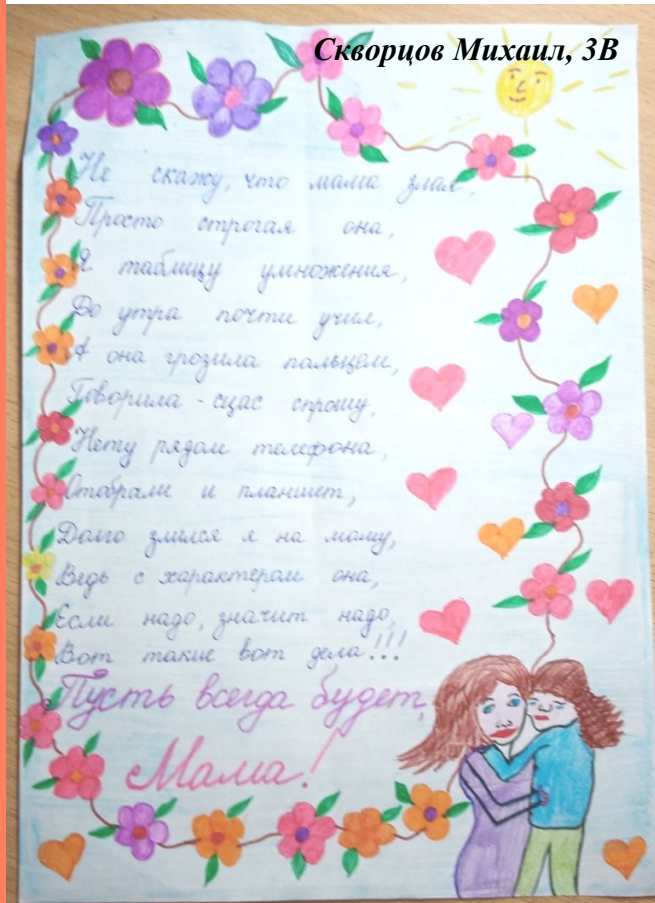 Скворцов Михаил, 3В
Не скажу, что мама злая,
Просто строгая она,
Я таблицу умножения,
До утра почти учил,
А она грозила пальцем,
Говорила - сщас спрошу,
Нету рядом телефона,
Отобрали и планшет,
Долго злился я на маму,
Ведь с характером она,
Если надо, значит надо,
Вот такие вот дела!!!
Пусть всегда будет,
Мама!